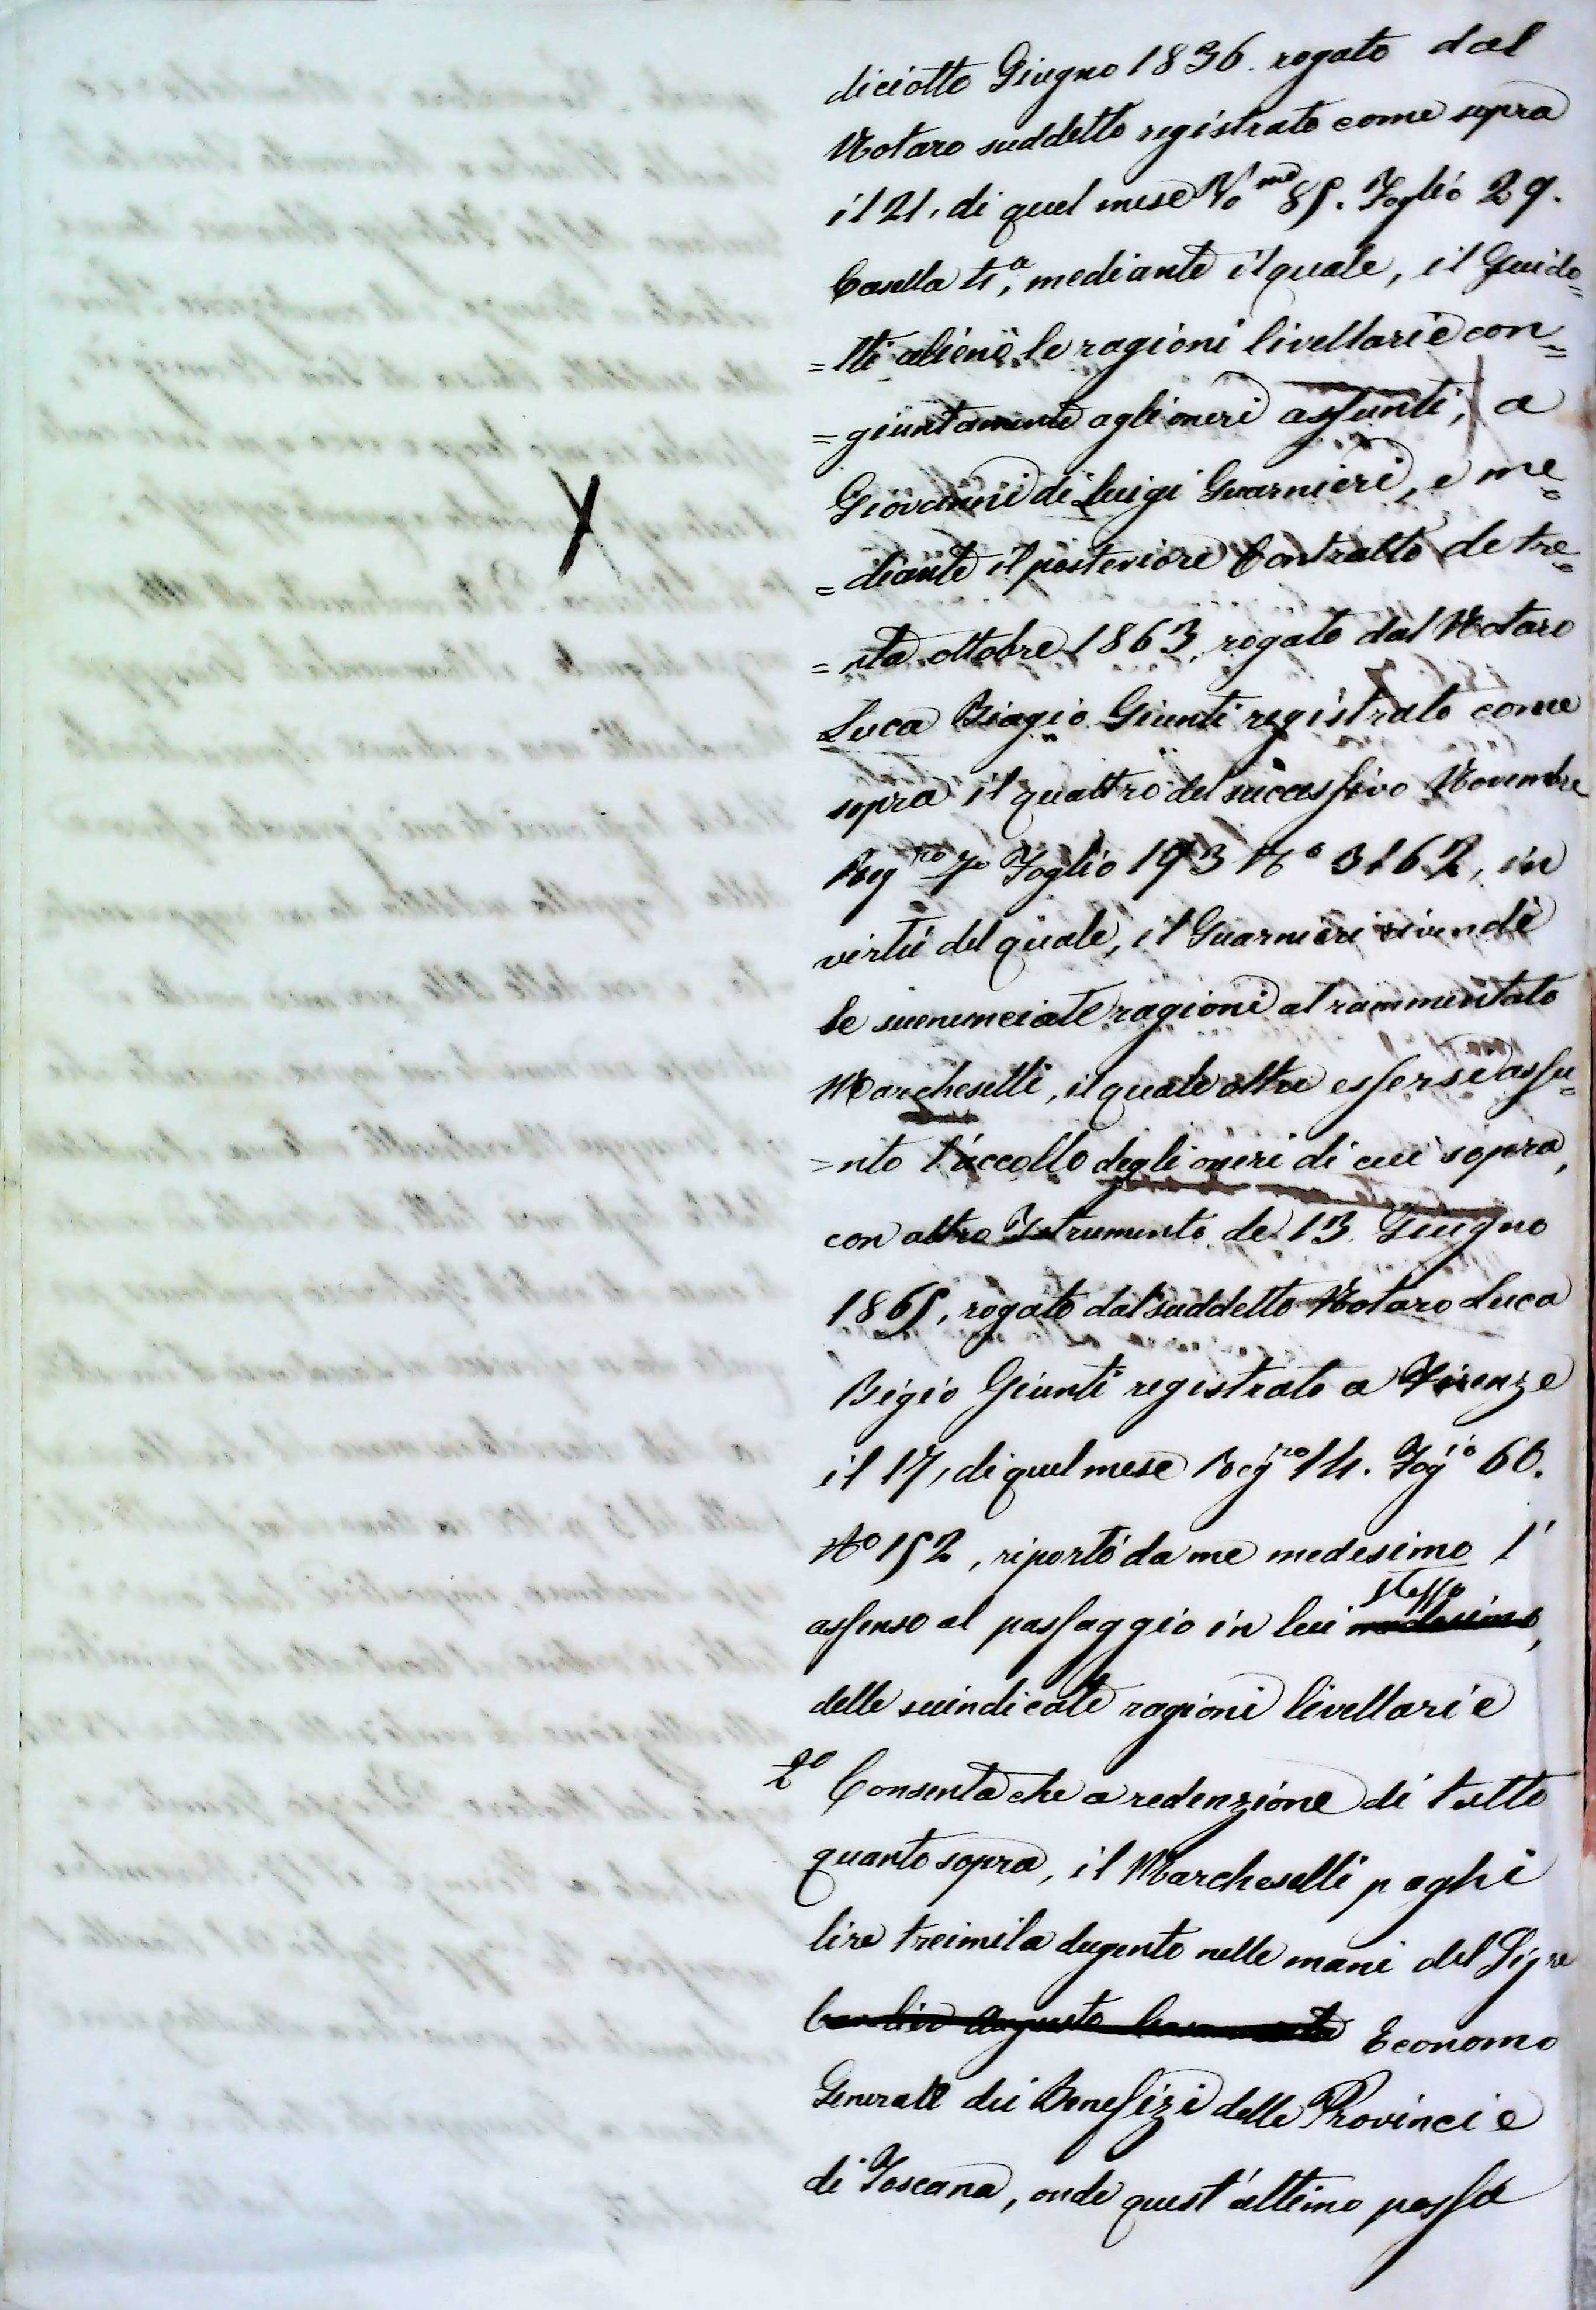 diciotto Giugno 1836. rogato dal
Notaro suddetto registrato come sopra
il 21, di quel mese Vo.me 85. Foglio 29.
Casella 4.a, mediante il quale, il Guido=
=tti alienò le ragioni livellarie con=
=giuntamente agli oneri assunti, a
Giovanni di Luigi Guarnieri, e me=
=diante il posteriore Contratto de tre=
=nta ottobre 1863, rogato dal Notaro
Luca Biagio Giunti registrato come
sopra il quattro del successivo Novembre
Reg.ro 7o Foglio 193 No 3162, in
virtù del quale, il Guarnieri rivendè
le surenunciate ragioni al rammentato
Marcheselli, il quale oltre essersi assu=
=nto l'accollo degli oneri di cui sopra,
con altro Istrumento de 13. Giugno
1865, rogato dal suddetto Notaro Luca
Bigio Giunti registrato a Firenze
il 17, di quel mese Reg.ro 14. Fog.io 60.
No 152, riportò da me medesimo l'
assenso al passaggio in lui medesimo stesso,
delle suindicate ragioni livellarie
2o Consenta che a redenzione di tutto
quanto sopra, il Marcheselli paghi
lire treimila dugento nelle mani del Sigre
Augusto Economo
Generale dei Benefizi delle Provincie
di Toscana, onde quest'ultimo possa